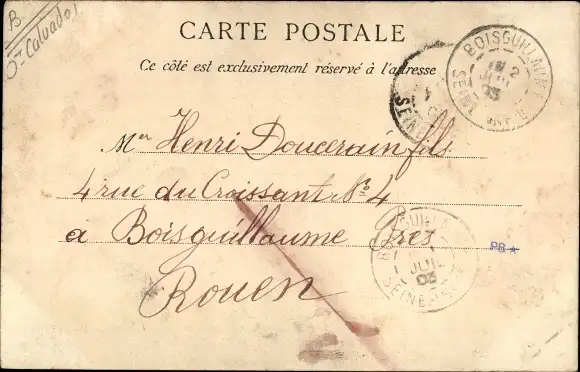 B
Ot-Calvados
CARTE POSTALE
Ce côté est exclusivement réservé à l'adresse
BOISGUILLAUME
2
03
SEINE
SEINE
Mr Henri Doucerain fils
4 rue du Croissant No 4
a Boisguillaume Pres
Rouen
BOISGUILLAUME
1
JUIL
03
SEINE
PB★